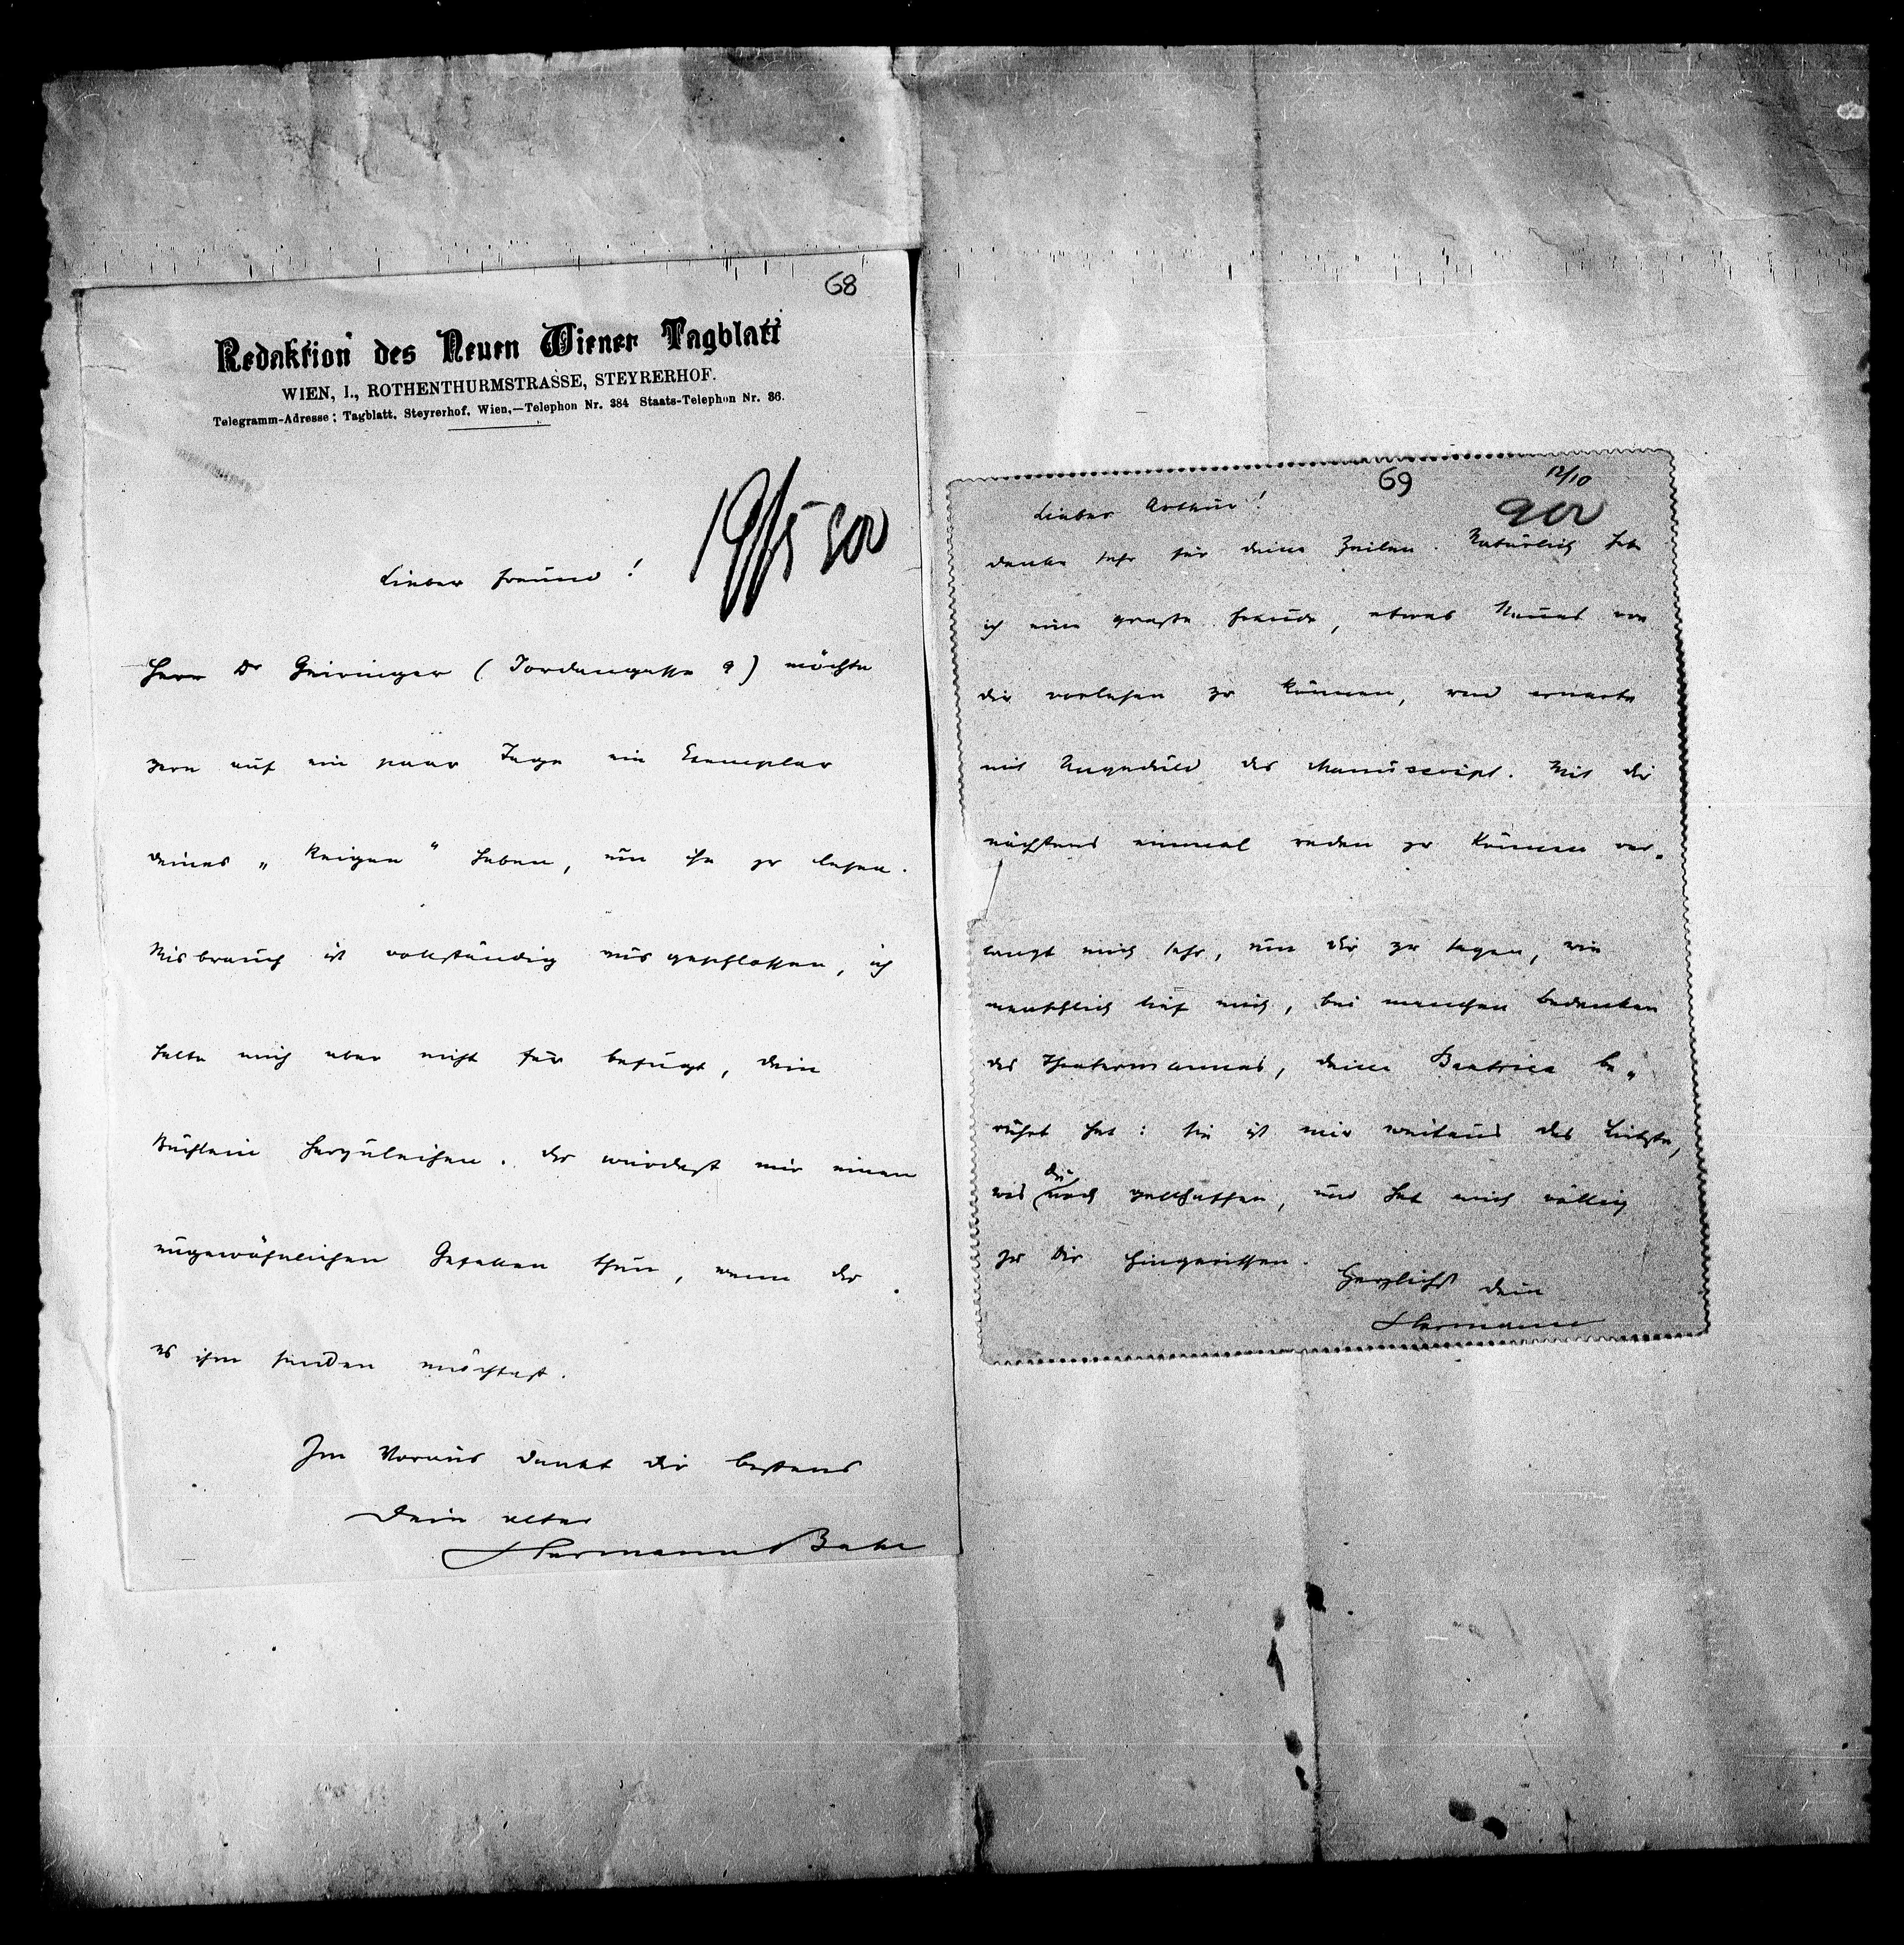 68
Redaktion des Neuen Wiener Tagblatt
WIEN, I., ROTHENTHURMSTRASSE, STEYRERHOF.
Telegramm-Adresse: Tagblatt, Steyrerhof, Wien.—Telephon Nr. 384 Staats-Telephon Nr. 36.
19/5 900
Lieber Freund!
Herr Dr Geiringer (Jordangasse 9) möchte
gern auf ein paar Tage ein Exemplar
deines „Reigen“ haben, um ihn zu lesen.
Misbrauch ist vollständig ausgeschlossen, ich
halte mich aber nicht für befugt, dein
Büchlein herzuleihen. Du würdest mir einen
ungewöhnlichen Gefallen thun, wenn du
es ihm senden möchtest.
Im Voraus dankt dir bestens
Dein alter
Hermann Bahr
69
12/10
900
Lieber Arthur!
danke sehr für deine Zeilen. Natürlich habe
ich eine große Freude, etwas Neues von
dir vorlesen zu können, und erwarte
mit Ungeduld das Manuscript. Mit dir
nächstens einmal reden zu können ver-
langt mich sehr, um dir zu sagen, wie
menschlich tief mich, bei manchen Bedenken
des Theatermannes, deine Beatrice be-
rührt hat: sie ist mir weitaus das Liebste,
was du noch geschaffen, und hat mich völlig
zu Dir hingerissen.
Herzlichst dein
Hermann